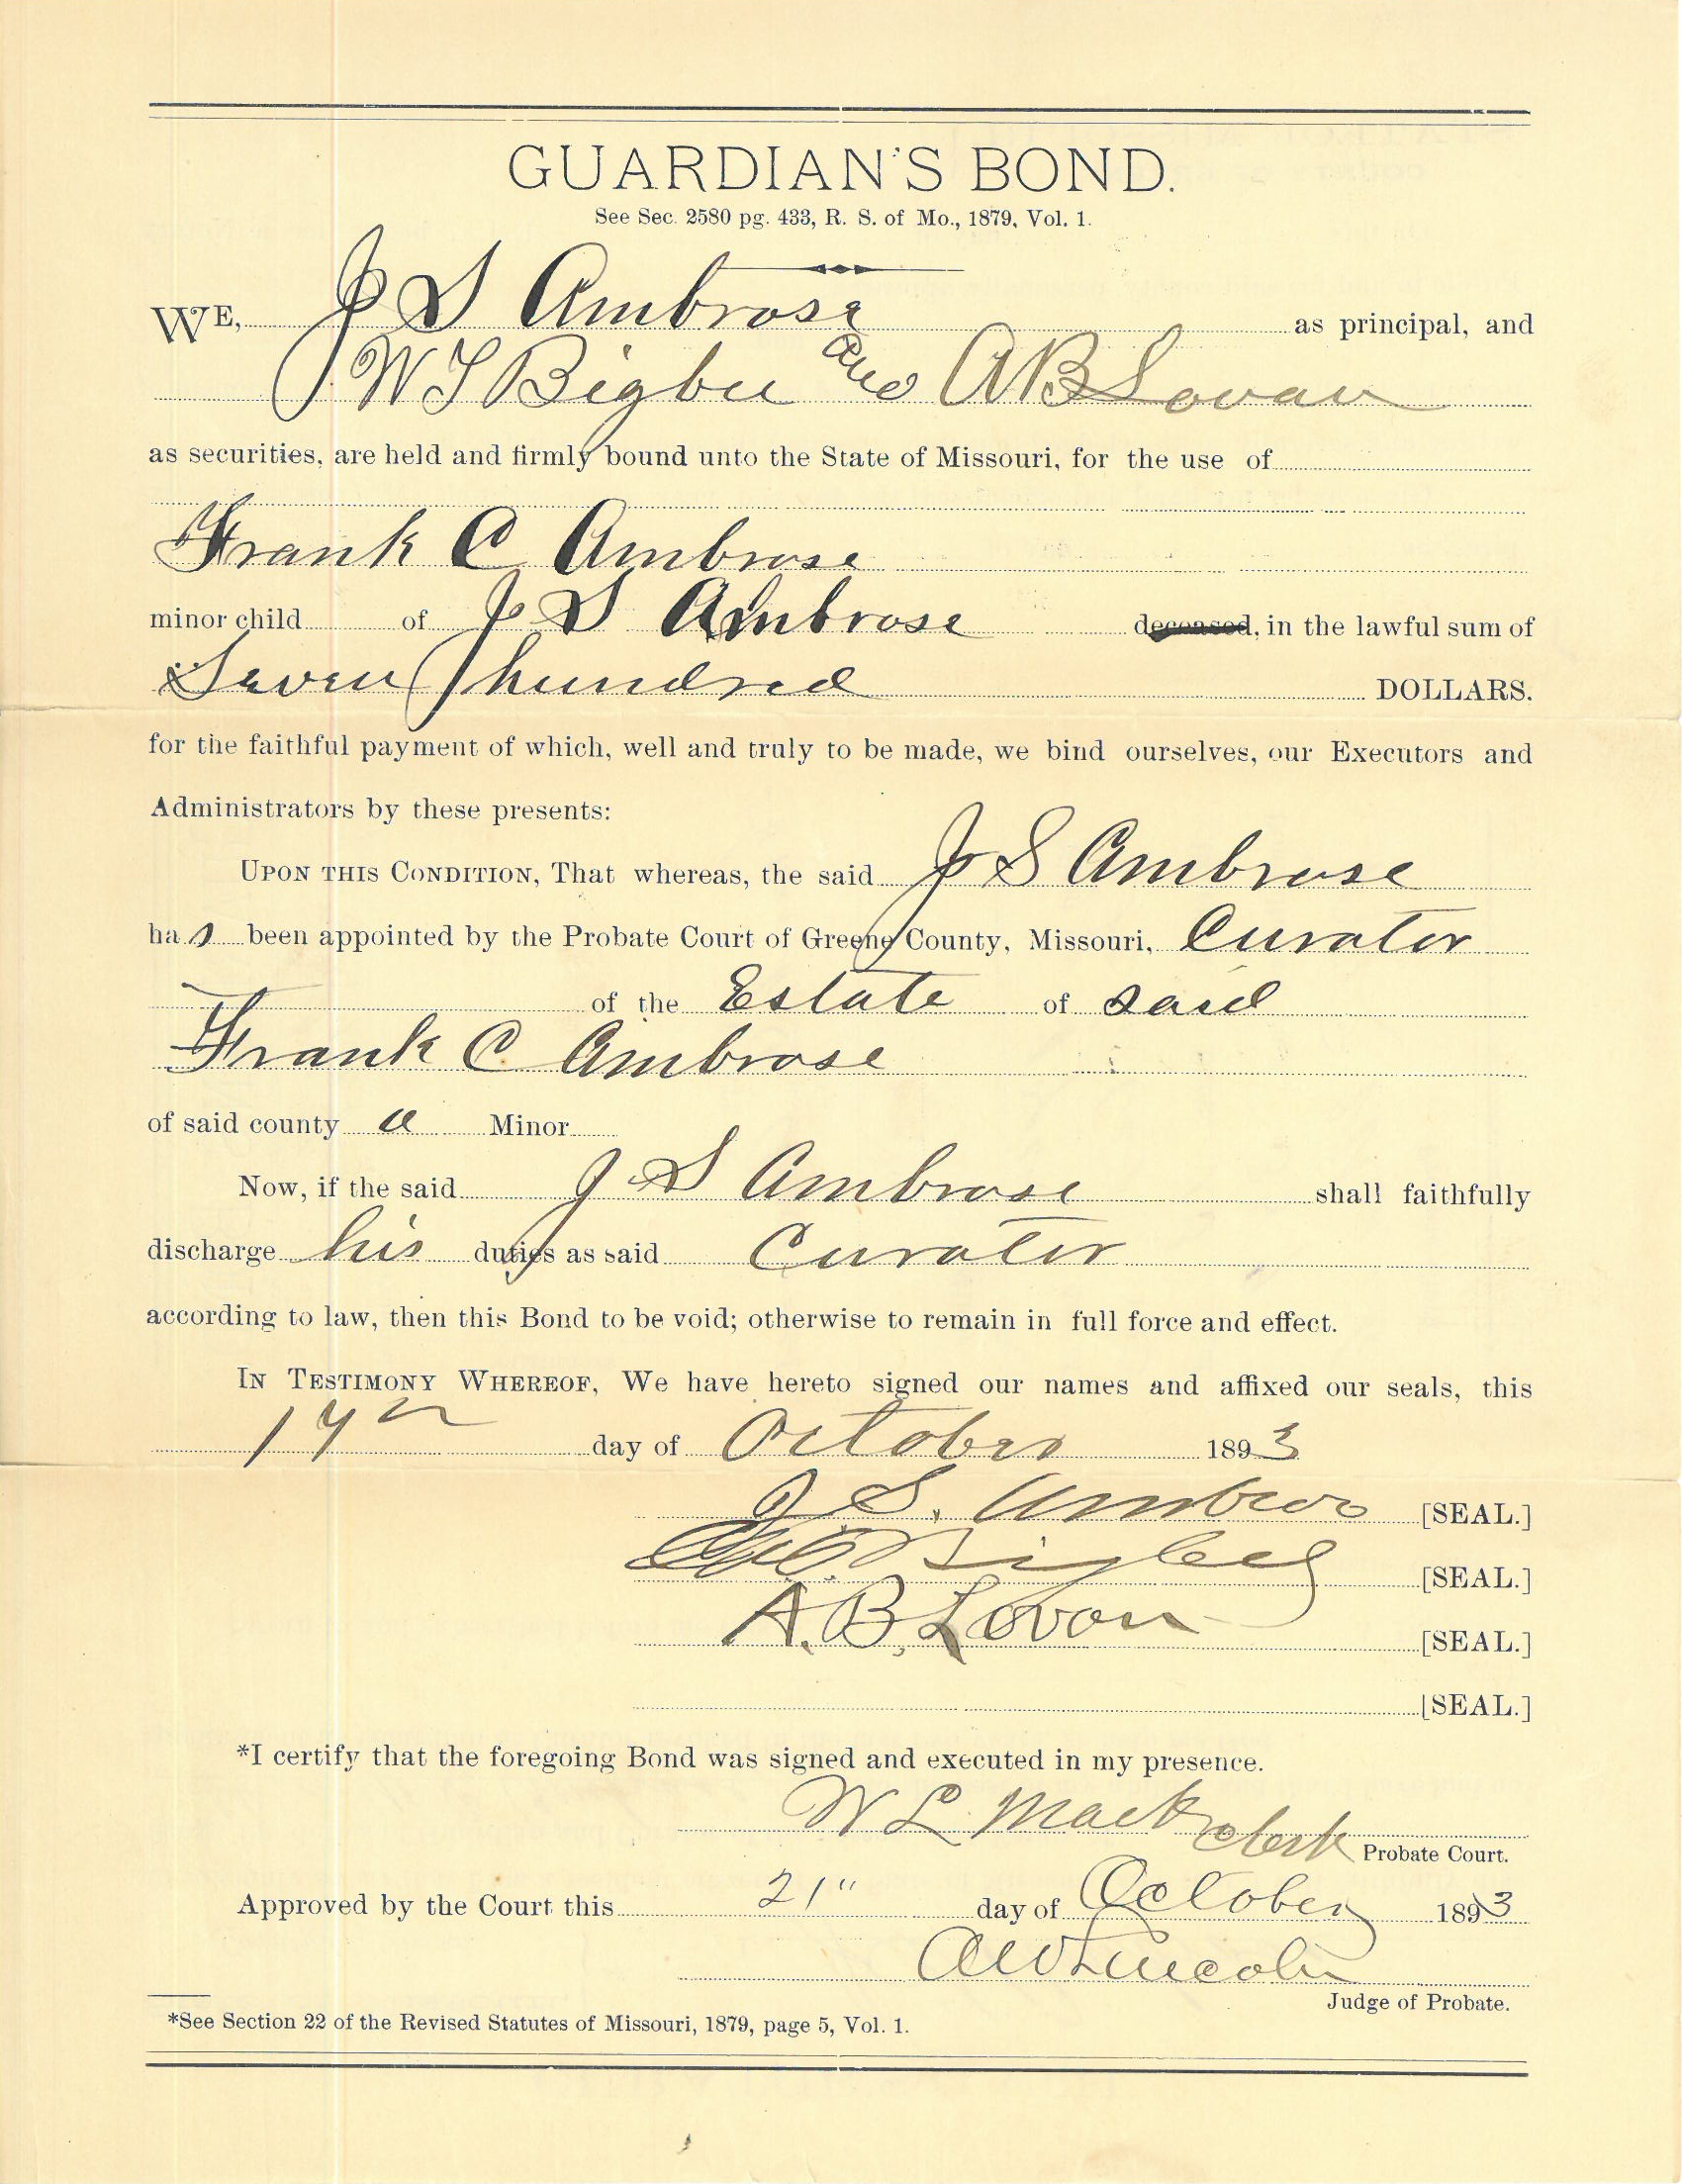 GUARDIAN'S BOND.
See Sec. 2580 pg. 433, R. S. of Mo., 1879, Vol. 1.
WE, J S Ambrose as principal, and
W T Bigbee and A B Lovan
as securities, are held and firmly bound unto the State of Missouri, for the use of
Frank C Ambrose
minor child of J S Ambrose deceased, in the lawful sum of
Seven hundred DOLLARS.
for the faithful payment of which, well and truly to be made, we bind ourselves, our Executors and
Administrators by these presents:
UPON THIS CONDITION, That whereas, the said J S Ambrose
has been appointed by the Probate Court of Greene County, Missouri, Curator
of the Estate of said
Frank C Ambrose
of said county a Minor
Now, if the said J S Ambrose shall faithfully
discharge his duties as said Curator
according to law, then this Bond to be void; otherwise to remain in full force and effect.
IN TESTIMONY WHEREOF, We have hereto signed our names and affixed our seals, this
day of October 1893
J. S. Ambros [SEAL.]
Bigbee [SEAL.]
A. B. Lovan [SEAL.]
[SEAL.]
*I certify that the foregoing Bond was signed and executed in my presence.
W L Mack clerk Probate Court.
Approved by the Court this 21" day of October 1893
A W Lincoln
Judge of Probate.
*See Section 22 of the Revised Statutes of Missouri, 1879, page 5, Vol. 1.